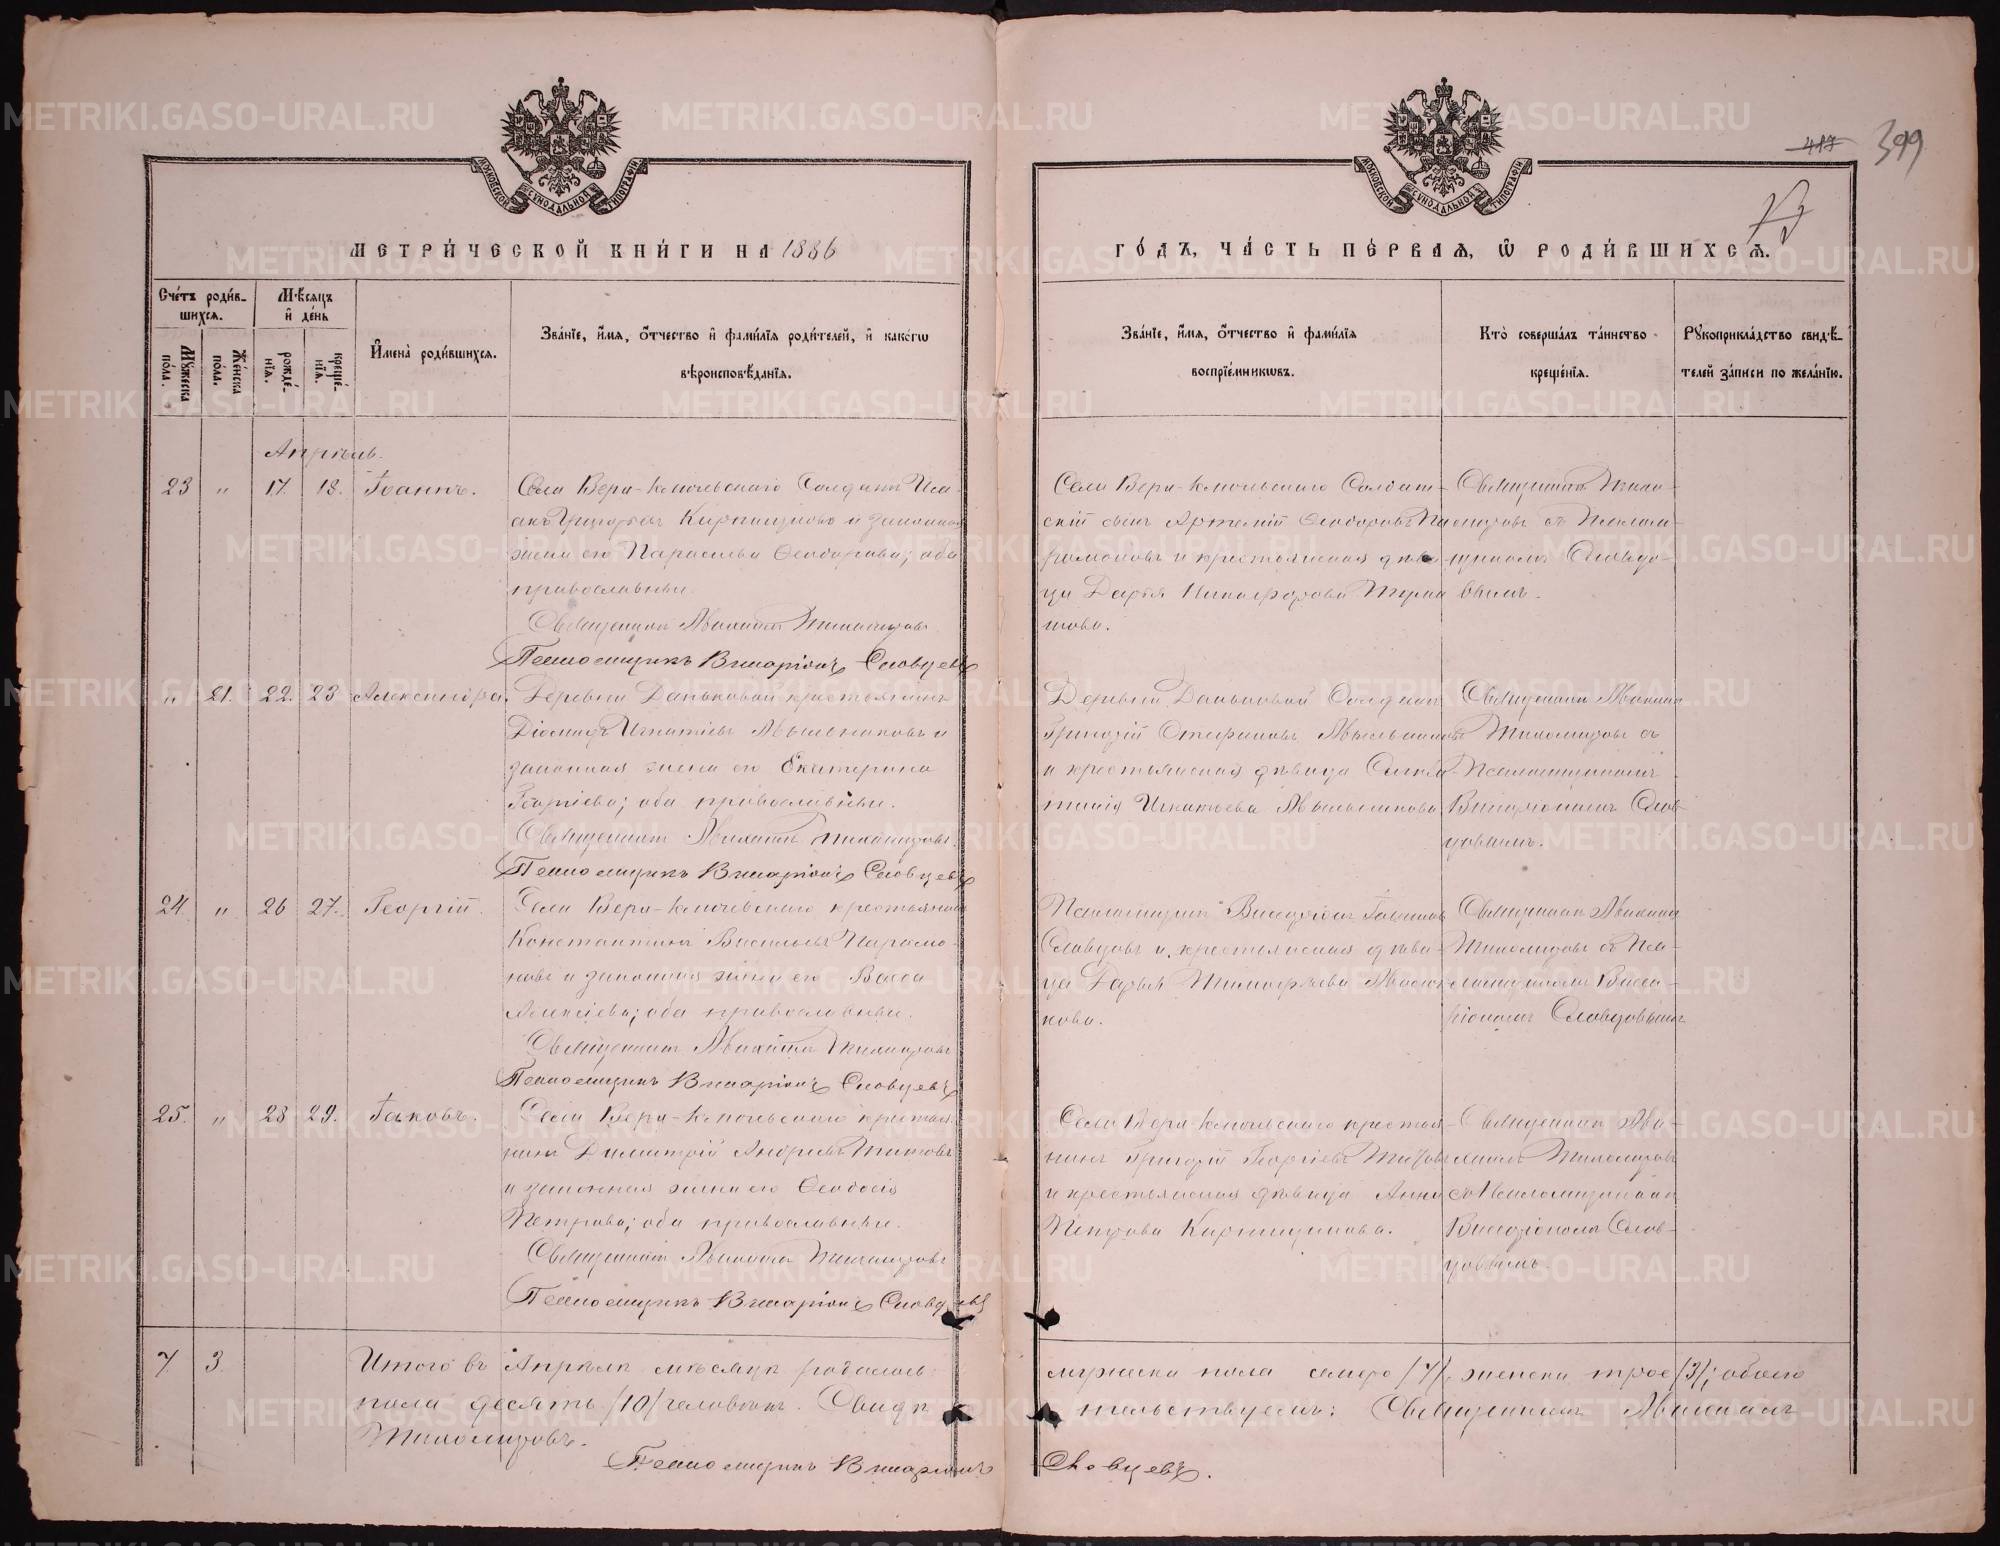 417 399
МОСКОВСКОЙ СѴНОДАЛЬНОЙ ТИПОГРАФІИ
МОСКОВСКОЙ СѴНОДАЛЬНОЙ ТИПОГРАФІИ
МЕТРИ́ЧЕСКОЙ КНИ́ГИ НА 1886
ГО́ДЪ, ЧА́СТЬ ПЕ́РВАѦ, Ѿ РОДИ́ВШИХСѦ.
Сче́тъ роди́в-
шихсѧ.
Мꙋ́жеска по́ла.
Же́нска по́ла.
Мѣ́сѧцъ
и҆ де́нь
рожде́-
нїѧ.
креще́-
нїѧ.
И҆мена̀ роди́вшихсѧ.
Зва́нїе, и҆́мѧ, ѻ҆́тчество и҆ фамі́лїѧ роди́телей, и҆ како́гѡ
вѣроисповѣ́данїѧ.
Зва́нїе, и҆́мѧ, ѻ҆́тчество и҆ фамі́лїѧ
воспрїе́мникѡвъ.
Кто̀ соверша́лъ та́инство
креще́нїѧ.
Рꙋкоприкла́дство свидѣ́-
телей за́писи по жела́нїю.
Апрѣль.
23 " 17. 18. Іоаннъ.
Села Верх-Ключевскаго Солдатъ Иса-
акъ Григорьевъ Кирпищиковъ и законная
жена его Параскева Ѳеодорова; оба
православные.
Священникъ Михаилъ Тихомировъ
Псаломщикъ Виссаріонъ Словцевъ
Села Верх-Ключевскаго Солдат-
скій сынъ Артемій Ѳеодоровъ Па-
рамоновъ и крестьянская дѣви-
ца Дарья Никифорова
Священникъ Тихо-
мировъ съ Псалом-
щикомъ Словцо-
вымъ.
" 21. 22. 23 Александра.
Деревни Даньковой крестьянинъ
Діомидъ Игнатіевъ Мыльниковъ и
законная жена его Екатерина
Георгіева; оба православные.
Священникъ Михаилъ Тихомировъ
Псаломщикъ Виссаріонъ Словцевъ
Деревни Даньковой Солдатъ
Григорій Стефановъ Мыльниковъ
и крестьянская дѣвица
Игнатьева Мыльникова
Священникъ Михаилъ
Тихомировъ съ
Псаломщикомъ
Виссаріономъ Слов-
цовымъ.
24. " 26 27. Георгій.
Села Верх-Ключевскаго крестьянинъ
Константинъ Васильевъ Парамо-
новъ и законная жена его Васса
Алексіева; оба православные.
Священникъ Михаилъ Тихомировъ
Псаломщикъ Виссаріонъ Словцевъ
Псаломщикъ Виссаріонъ
Словцовъ и крестьянская дѣви-
ца Дарья Тимофѣева
кова.
Священникъ Михаилъ
Тихомировъ съ Пса-
ломщикомъ Висса-
ріономъ Словцовымъ
25. " 28 29. Іаковъ.
Села Верх-Ключевскаго крестья-
нинъ Димитрій Андреевъ Титовъ
и законная жена его Ѳеодосія
Петрова; оба православные.
Священникъ Михаилъ Тихомировъ
Псаломщикъ Виссаріонъ Словцевъ
Села Верх-Ключевскаго крестья-
нинъ Григорій Георгіевъ Титовъ
и крестьянская дѣвица Анна
Петрова Кирпищикова.
Священникъ Ми-
хаилъ Тихомировъ
съ Псаломщикомъ
Виссаріономъ Слов-
цовымъ.
7 3. Итого въ Апрѣлѣ мѣсяцѣ родилось мужеска пола семеро /7/, женска трое /3/; обоего
пола десять /10/ человѣкъ. Свидѣтельствуемъ: Священникъ Михаилъ
Тихомировъ.
Псаломщикъ Виссаріонъ Словцевъ.
METRIKI.GASO-URAL.RU